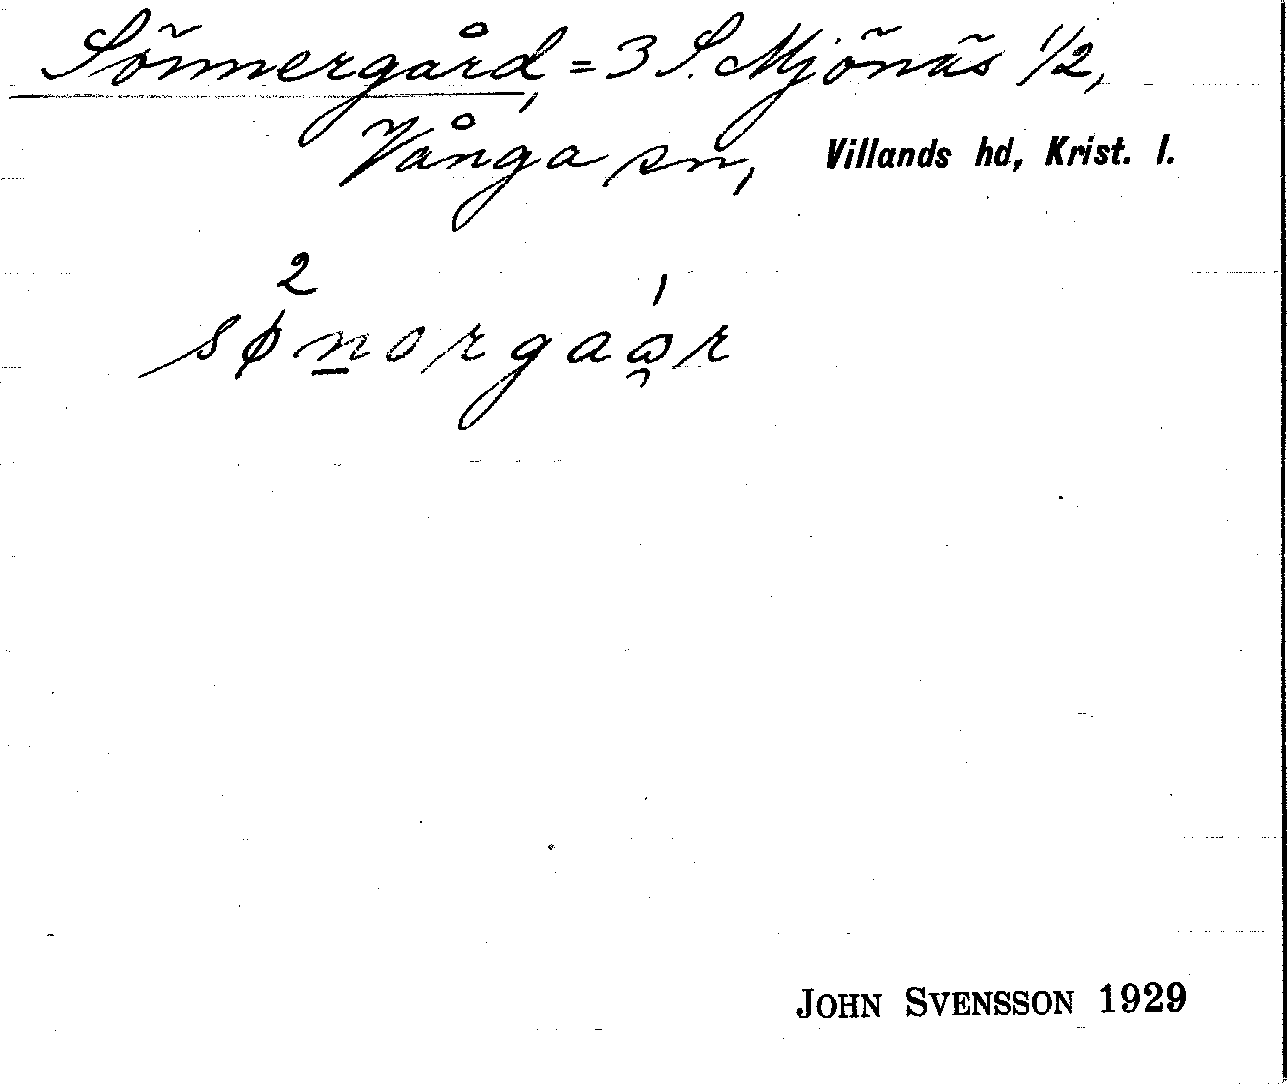 Sönnergård, = 3 S. Mjönäs 1/2,
Vånga sn, Villands hd, Krist. l.
2 1
søn̲orgaa̯r
JOHN SVENSSON 1929